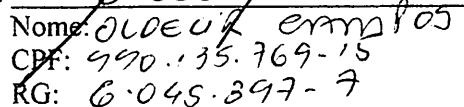 Nome: OLDECIR CAMPOS
CPF: 990.135.769-15
RG: 6.045.397-7